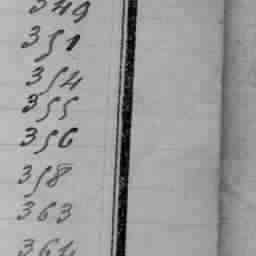 349
351
354
355
356
358
363
364